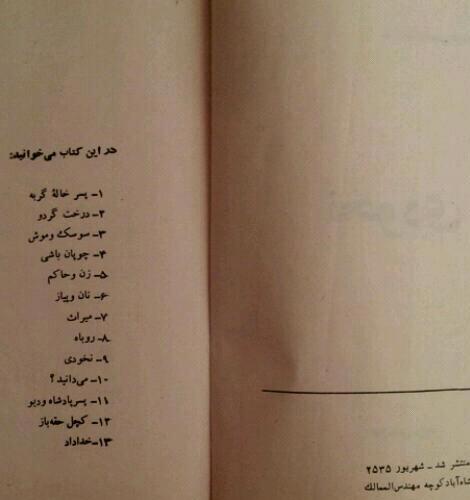 در این کتاب می‌خوانید:
۱- پسر خالهٔ گربه
۲- درخت گردو
۳- سوسك وموش
۴- چوپان باشی
۵- زن وحاکم
۶- نان وپیاز
۷- میراث
۸- روباه
۹- نخودی
۱۰- می‌دانید؟
۱۱- پسرپادشاه ودیو
۱۲- کچل حقه‌باز
۱۳-خداداد
منتشر شد - شهریور ۲۵۳۵
کوچه مهندس‌الممالك